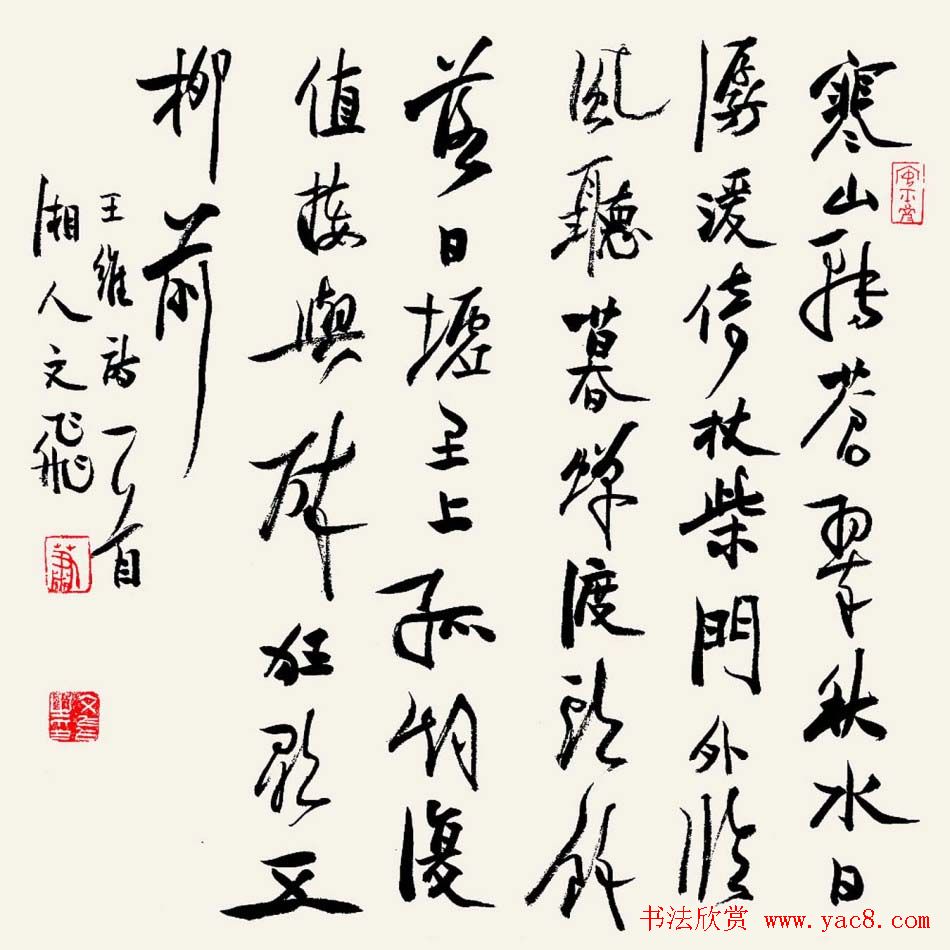 寒山轉蒼翠秋水日
潺湲倚杖柴門外臨
風聽暮蟬渡頭餘
落日墟里上孤烟復
值接輿醉狂歌五
柳前
王維詩一首
湘人文飛
蕭
书法欣赏 www.yac8.com